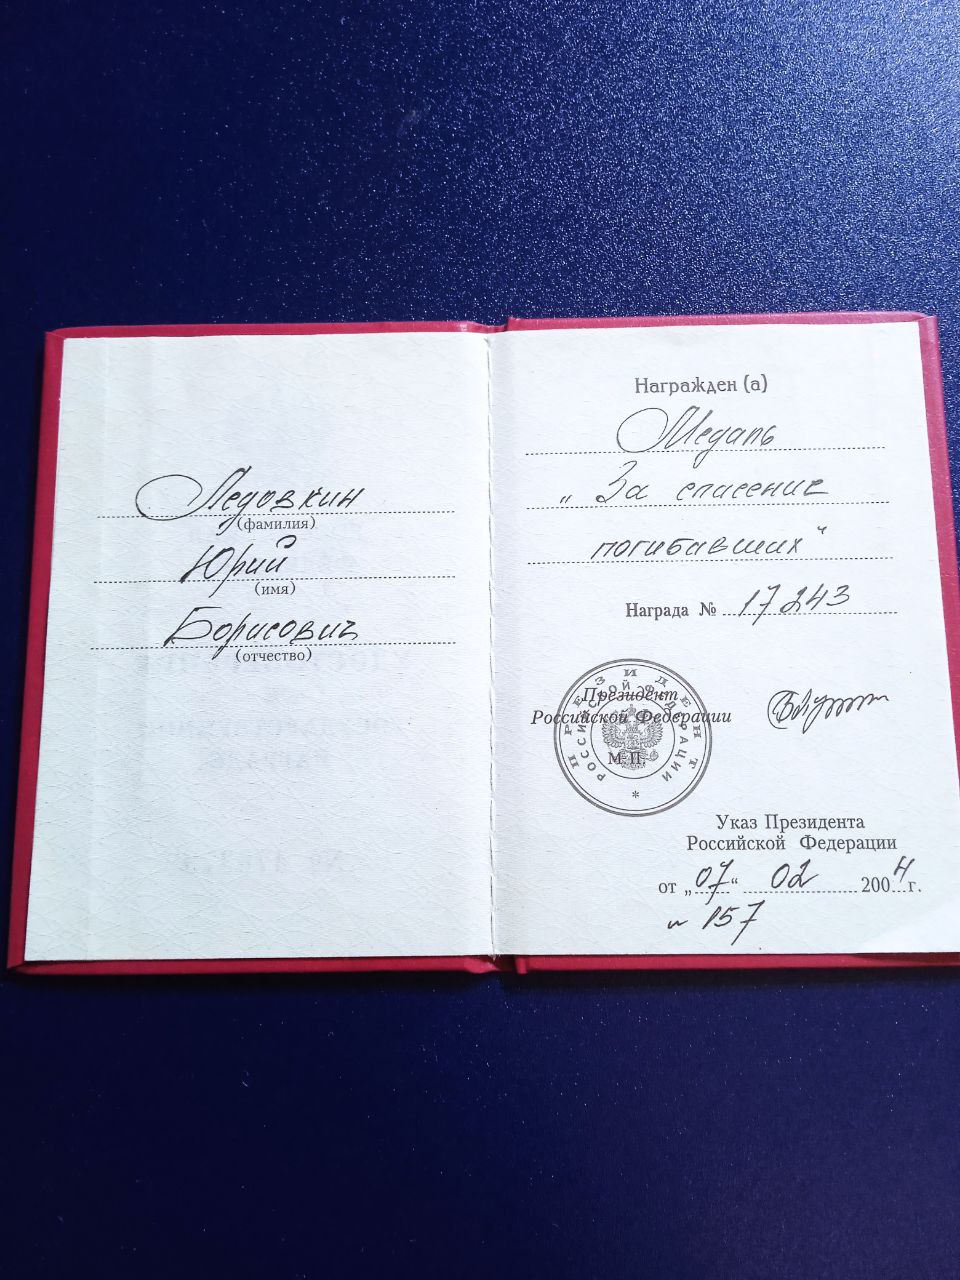 Ледовкин
(фамилия)
Юрий
(имя)
Борисович
(отчество)
Награжден (а)
Медаль
„За спасение
погибавших"
Награда № 17243
Президент
Российской Федерации
М.П.
ПРЕЗИДЕНТ
РОССИЙСКОЙ ФЕДЕРАЦИИ
*
Указ Президента
Российской Федерации
от „07" 02 2004 г.
157